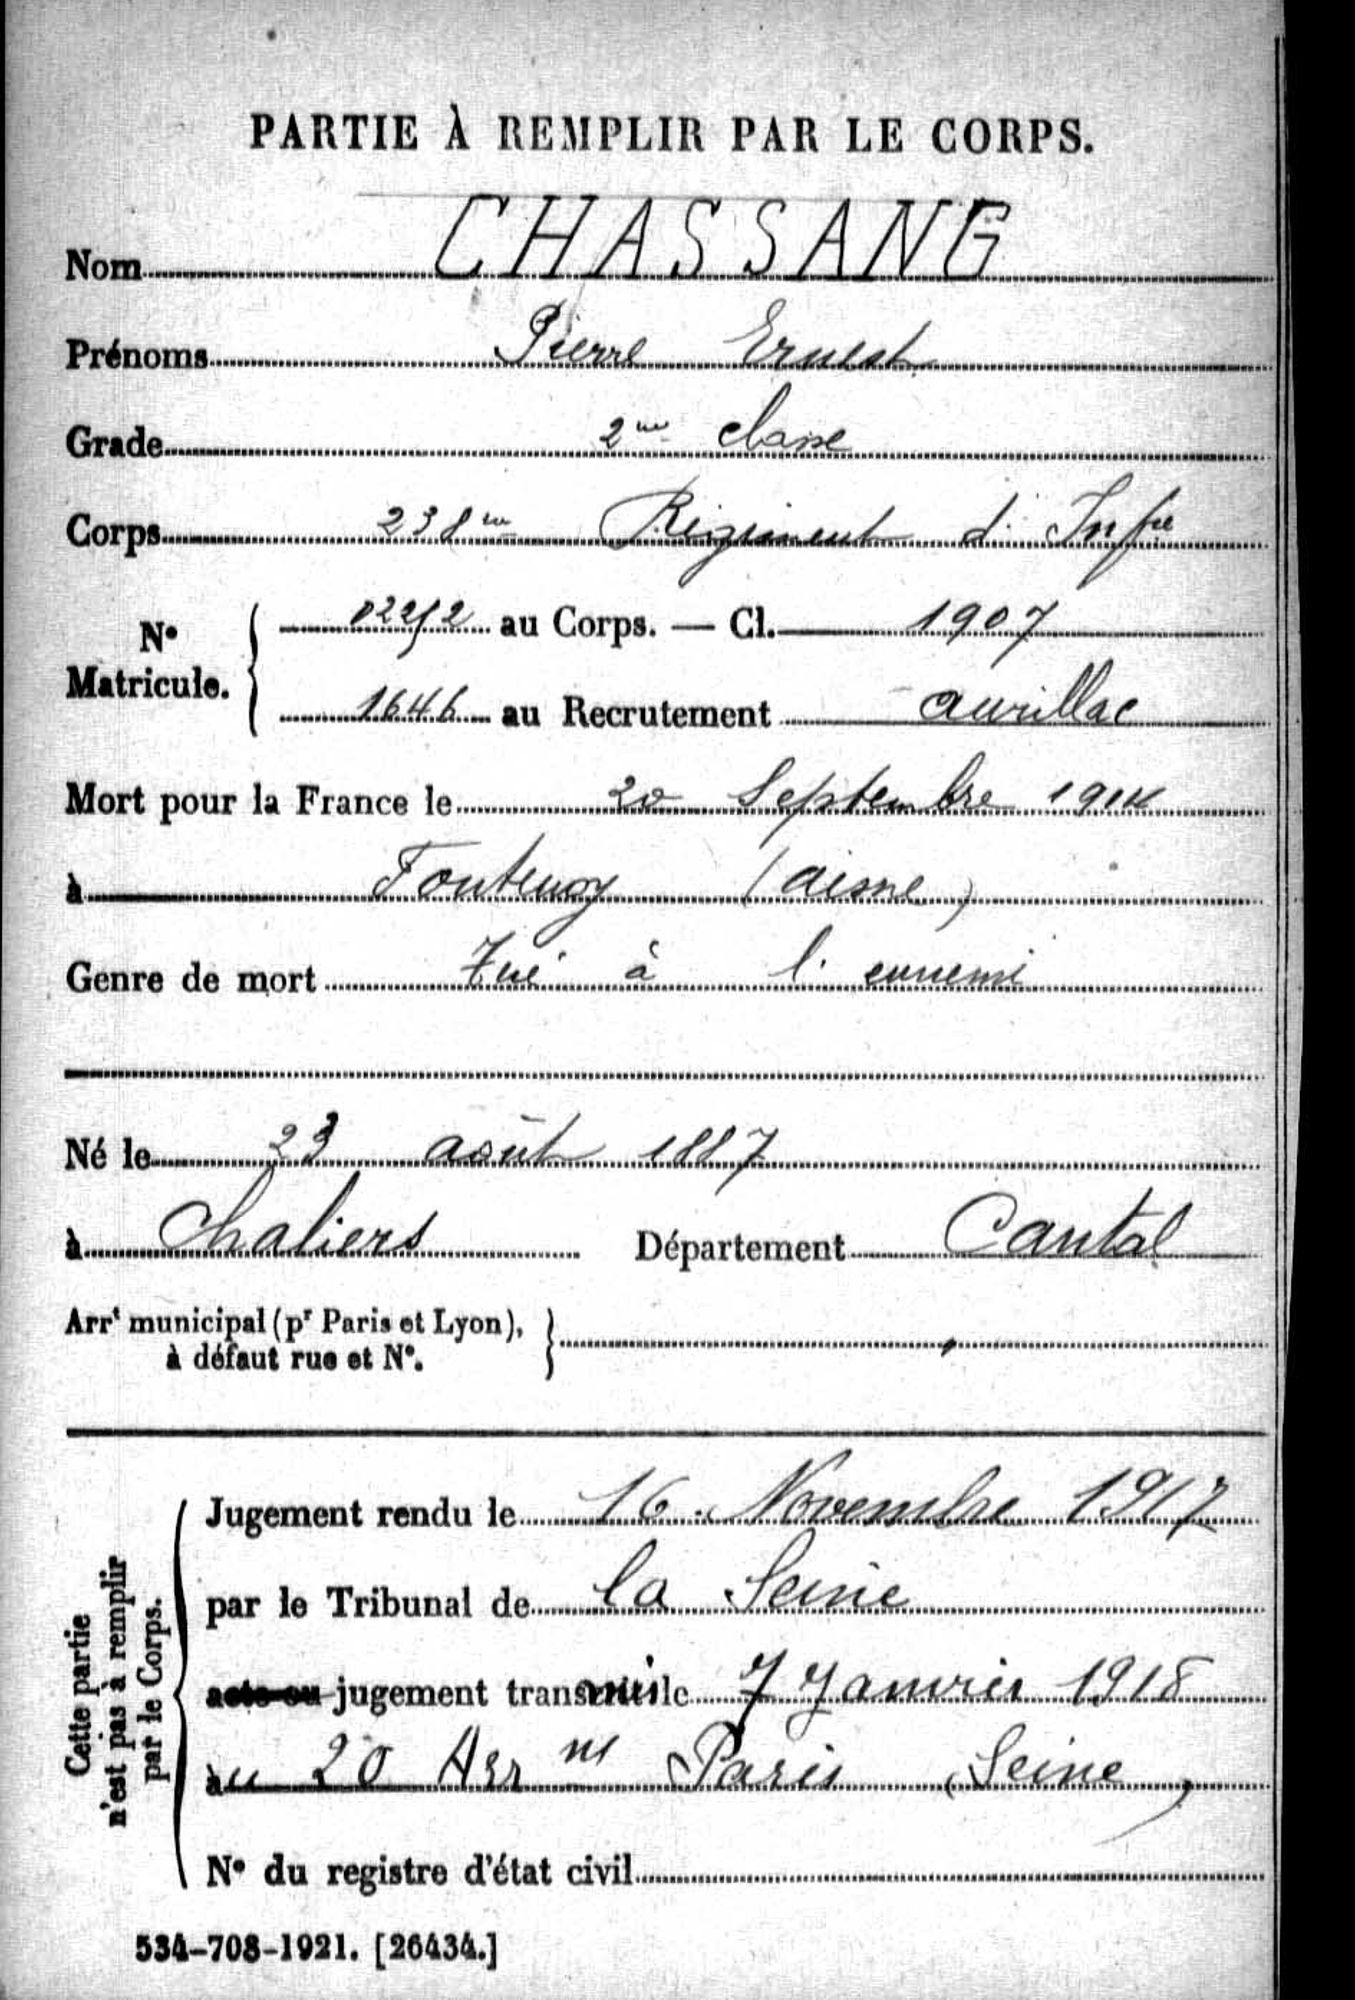 PARTIE À REMPLIR PAR LE CORPS.
Nom CHASSANG
Prénoms Pierre Ernest
Grade 2me classe
Corps 238me Régiment d'Infie
N° Matricule.
au Corps. — Cl. 1907
1646 au Recrutement aurillac
Mort pour la France le 20 Septembre 1914
à Fontenoy (aisne)
Genre de mort Tué à l'ennemi
Né le 23 août 1887
à Chaliers Département Cantal
Arrt municipal (pr Paris et Lyon),
à défaut rue et N°.
Cette partie
n'est pas à remplir
par le Corps.
Jugement rendu le 16 Novembre 1917
par le Tribunal de la Seine
acte ou jugement transmis le 7 Janvier 1918
au 20 Arr nt Paris (Seine)
N° du registre d'état civil
534-708-1921. [26434.]